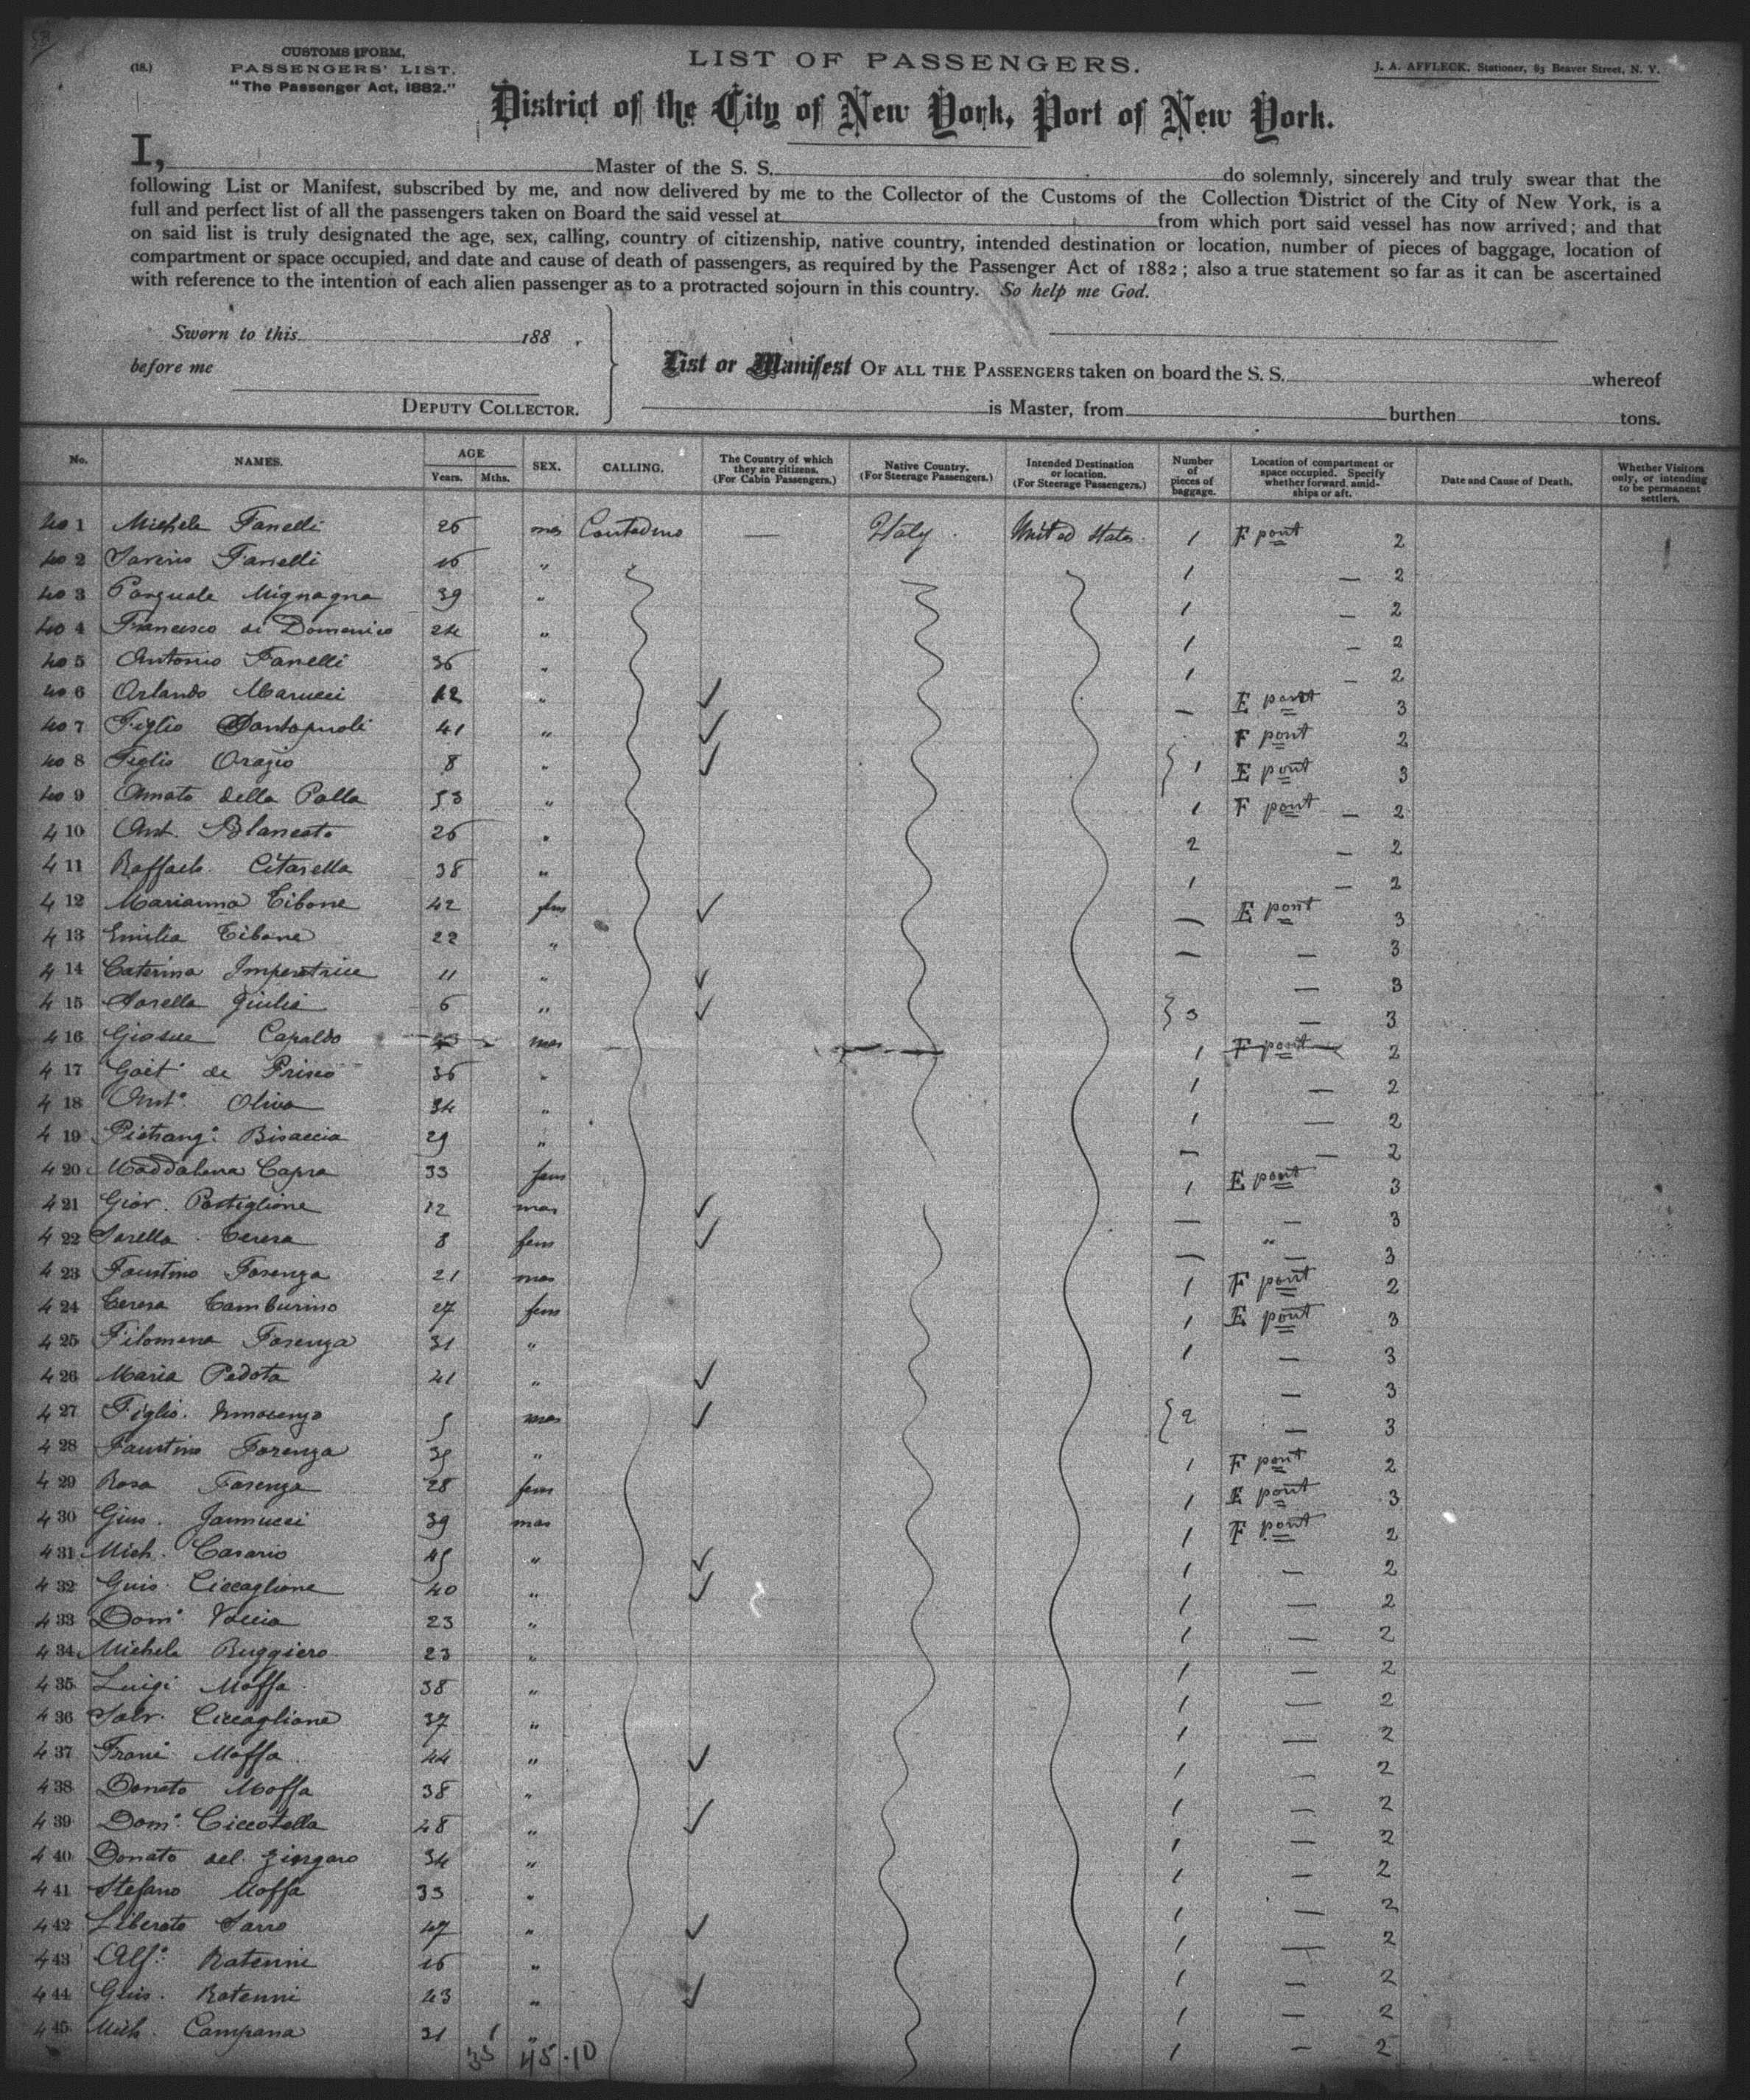 CUSTOMS FORM,
PASSENGERS' LIST.
"The Passenger Act, 1882."
(18.)
LIST OF PASSENGERS.
J. A. AFFLECK, Stationer, 83 Beaver Street, N. Y.
District of the City of New York, Port of New York.
I, Master of the S. S. do solemnly, sincerely and truly swear that the
following List or Manifest, subscribed by me, and now delivered by me to the Collector of the Customs of the Collection District of the City of New York, is a
full and perfect list of all the passengers taken on Board the said vessel at from which port said vessel has now arrived; and that
on said list is truly designated the age, sex, calling, country of citizenship, native country, intended destination or location, number of pieces of baggage, location of
compartment or space occupied, and date and cause of death of passengers, as required by the Passenger Act of 1882; also a true statement so far as it can be ascertained
with reference to the intention of each alien passenger as to a protracted sojourn in this country. So help me God.
Sworn to this 188 .
before me
DEPUTY COLLECTOR.
List or Manifest OF ALL THE PASSENGERS taken on board the S. S. whereof
is Master, from burthen tons.
No. NAMES. AGE Years. Mths. SEX. CALLING. The Country of which they are citizens. (For Cabin Passengers.) Native Country. (For Steerage Passengers.) Intended Destination or location. (For Steerage Passengers.) Number of pieces of baggage. Location of compartment or space occupied. Specify whether forward, amidships or aft. Date and Cause of Death. Whether Visitors only, or intending to be permanent settlers.
40 1 Michele Fanelli 26 mas Contadino — Italy United States 1 F pont 2
40 2 Saverio Fanelli 16 " 1 — 2
40 3 Pasquale Mignagna 39 " 1 — 2
40 4 Francesco di Domenico 24 " 1 — 2
40 5 Antonio Fanelli 36 " 1 — 2
40 6 Orlando Marucci 12 " ✓ — E pont 3
40 7 Figlio 41 " ✓ F pont 2
40 8 Figlio Orazio 8 " ✓ 1 E pont 3
40 9 Amato della Palla 53 " 1 F pont — 2
4 10 Ant. Blancato 26 " 2 — 2
4 11 Raffaele Citarella 38 " 1 — 2
4 12 Marianna Tibone 42 fem ✓ — E pont 3
4 13 Emilia Tibone 22 " — — 3
4 14 Caterina Imperatrice 11 " ✓ — 3
4 15 Sorella Giulia 6 " ✓ 3 — 3
4 16 Giosue Capaldo mas 1 F pont 2
4 17 Gaet. de Prisco 36 " 1 — 2
4 18 Ant.o Oliva 34 " 1 — 2
4 19 Pietrang.o Bisaccia 29 " — — 2
4 20 Maddalena Capra 33 fem 1 E pont 3
4 21 Giov. Postiglione 12 mas ✓ — — 3
4 22 Sorella Teresa 8 fem ✓ — " — 3
4 23 Faustino Forenza 21 mas 1 F pont 2
4 24 Teresa Tamburino 27 fem 1 E pont 3
4 25 Filomena Forenza 31 " 1 — 3
4 26 Maria Pedota 41 " ✓ — 3
4 27 Figlio Innocenzo 5 mas ✓ 2 — 3
4 28 Faustino Forenza 35 " 1 F pont 2
4 29 Rosa Forenza 28 fem 1 E pont 3
4 30 Gius. Jannucci 39 mas 1 F pont 2
4 31 Mich. Casario 45 " ✓ 1 — 2
4 32 Guis. Ciccaglione 40 " ✓ 1 — 2
4 33 Dom.o Voccia 23 " 1 — 2
4 34 Michele Ruggiero 23 " 1 — 2
4 35 Luigi Moffa 38 " 1 — 2
4 36 Salv. Ciccaglione 37 " 1 — 2
4 37 Moffa 44 " ✓ 1 — 2
4 38 Donato Moffa 38 " 1 — 2
4 39 Dom.o Ciccotella 48 " ✓ 1 — 2
4 40 Donato del Zingaro 34 " 1 — 2
4 41 Stefano Moffa 33 " 1 — 2
4 42 Liberato Sarro 47 " ✓ 1 — 2
4 43 Alf.o Ratenni 16 " 1 — 2
4 44 Guis. Ratenni 43 " ✓ 1 — 2
4 45 Mich. Campana 31 " 1 — 2
35 45 10